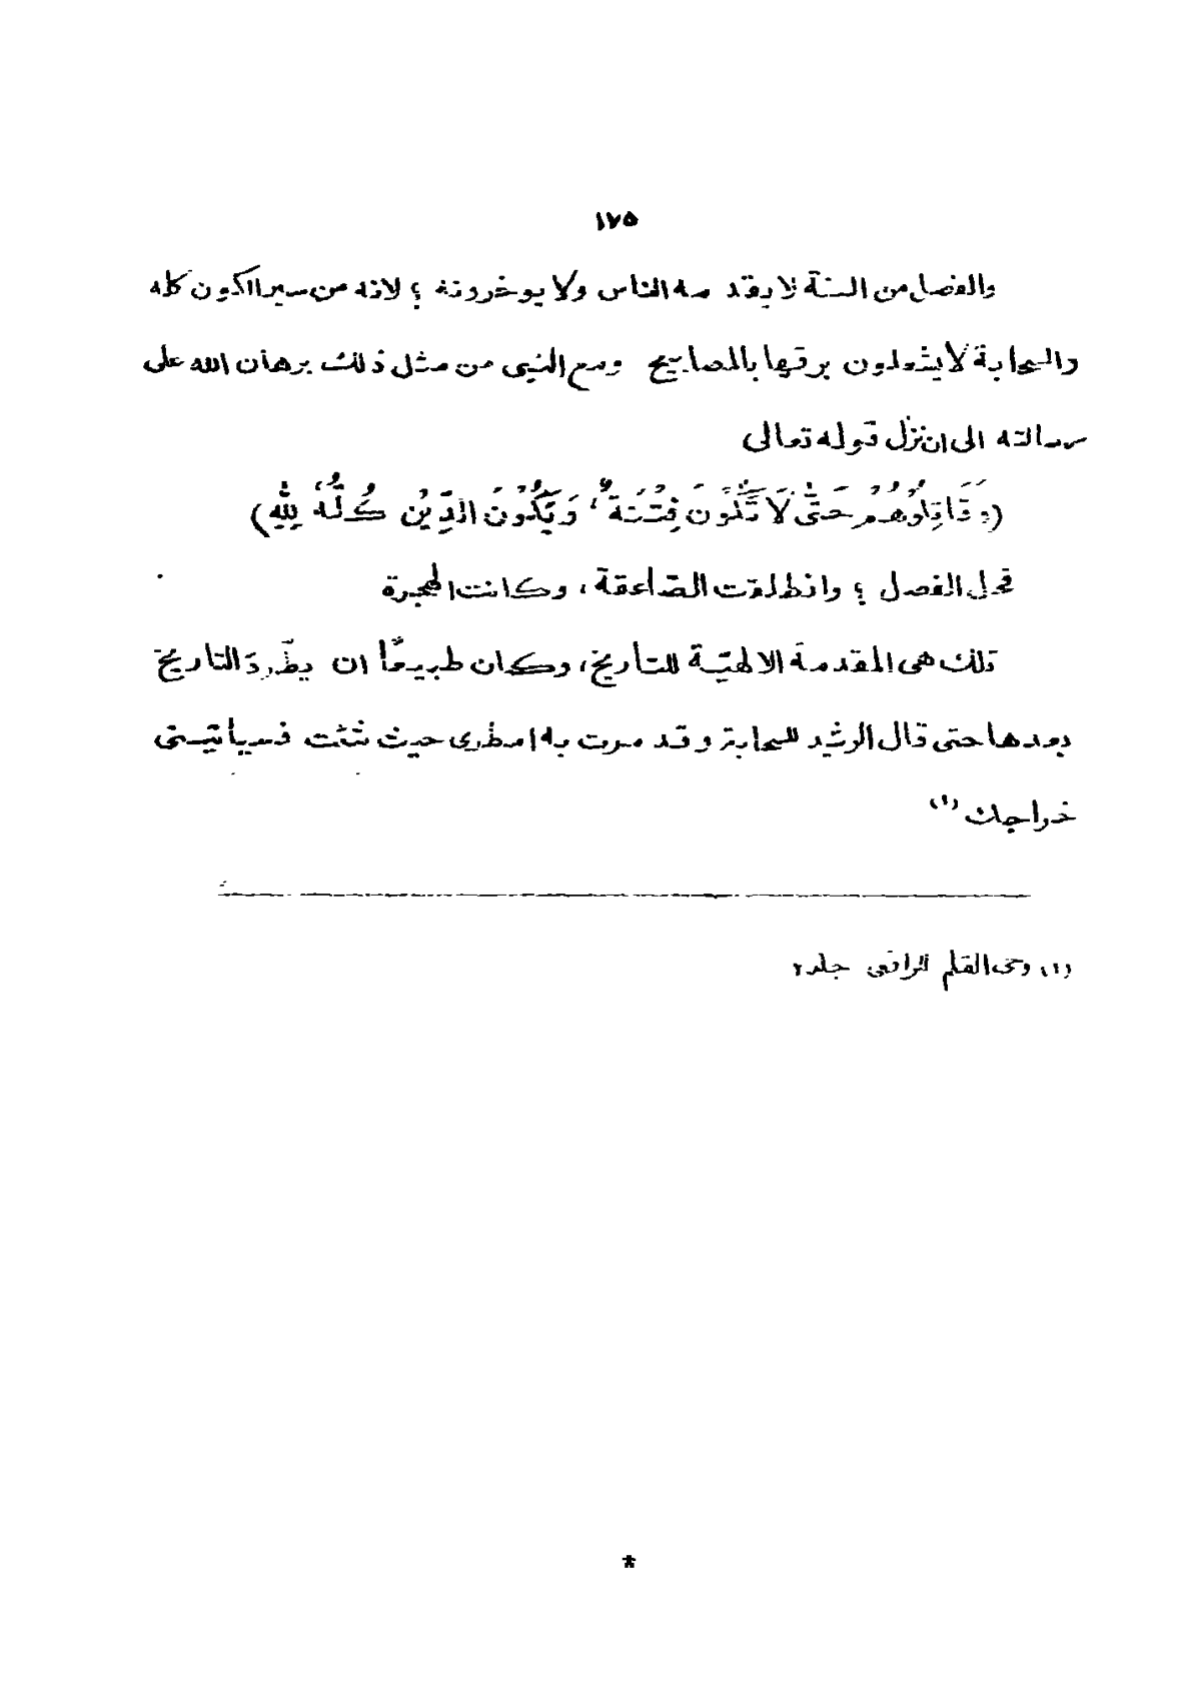 ١٧٥
والفصل من السنة لا يقد مه الناس ولا يوخرونه ؛ لانه من سير الكون كله
والسحابة لا يشعلون برقها بالمصابيح ومع النبى من مثل ذلك برهان الله على
رسالته الى ان نزل قوله تعالى
(وَقَاتِلُوْهُمْ حَتّٰى لَا تَكُوْنَ فِتْنَةٌ، وَيَكُوْنَ الدِّيْنُ كُلُّهٗ لِلّٰهِ)
فحل الفصل ؛ وانطلقت الصّاعقة ، وكانت الهجرة
تلك هى المقدمة الالهيّة للتاريخ، وكان طبيعًا ان يطّرد التاريخ
بعدها حتى قال الرشيد للسحابة وقد مرت به امطرى حيث شئت فسياتينى
خراجك (١)
(١) وحى القلم للرافعى جلد ٢
*